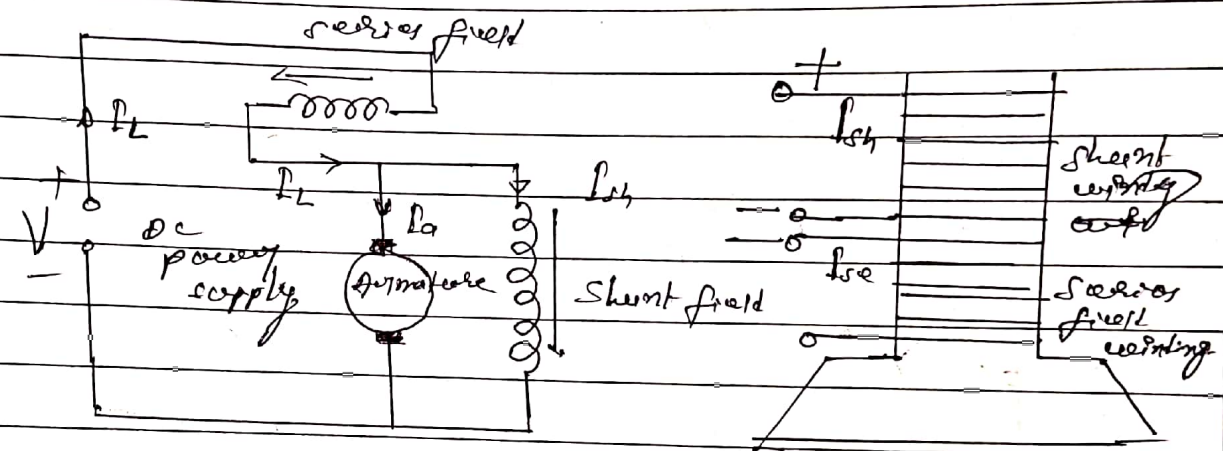 series field
I_L
+
V
-
DC
power
supply
I_L
Ia
Armature
Ish
Shunt field
+
Ish
Shunt
winding
Ise
Series
field
winting